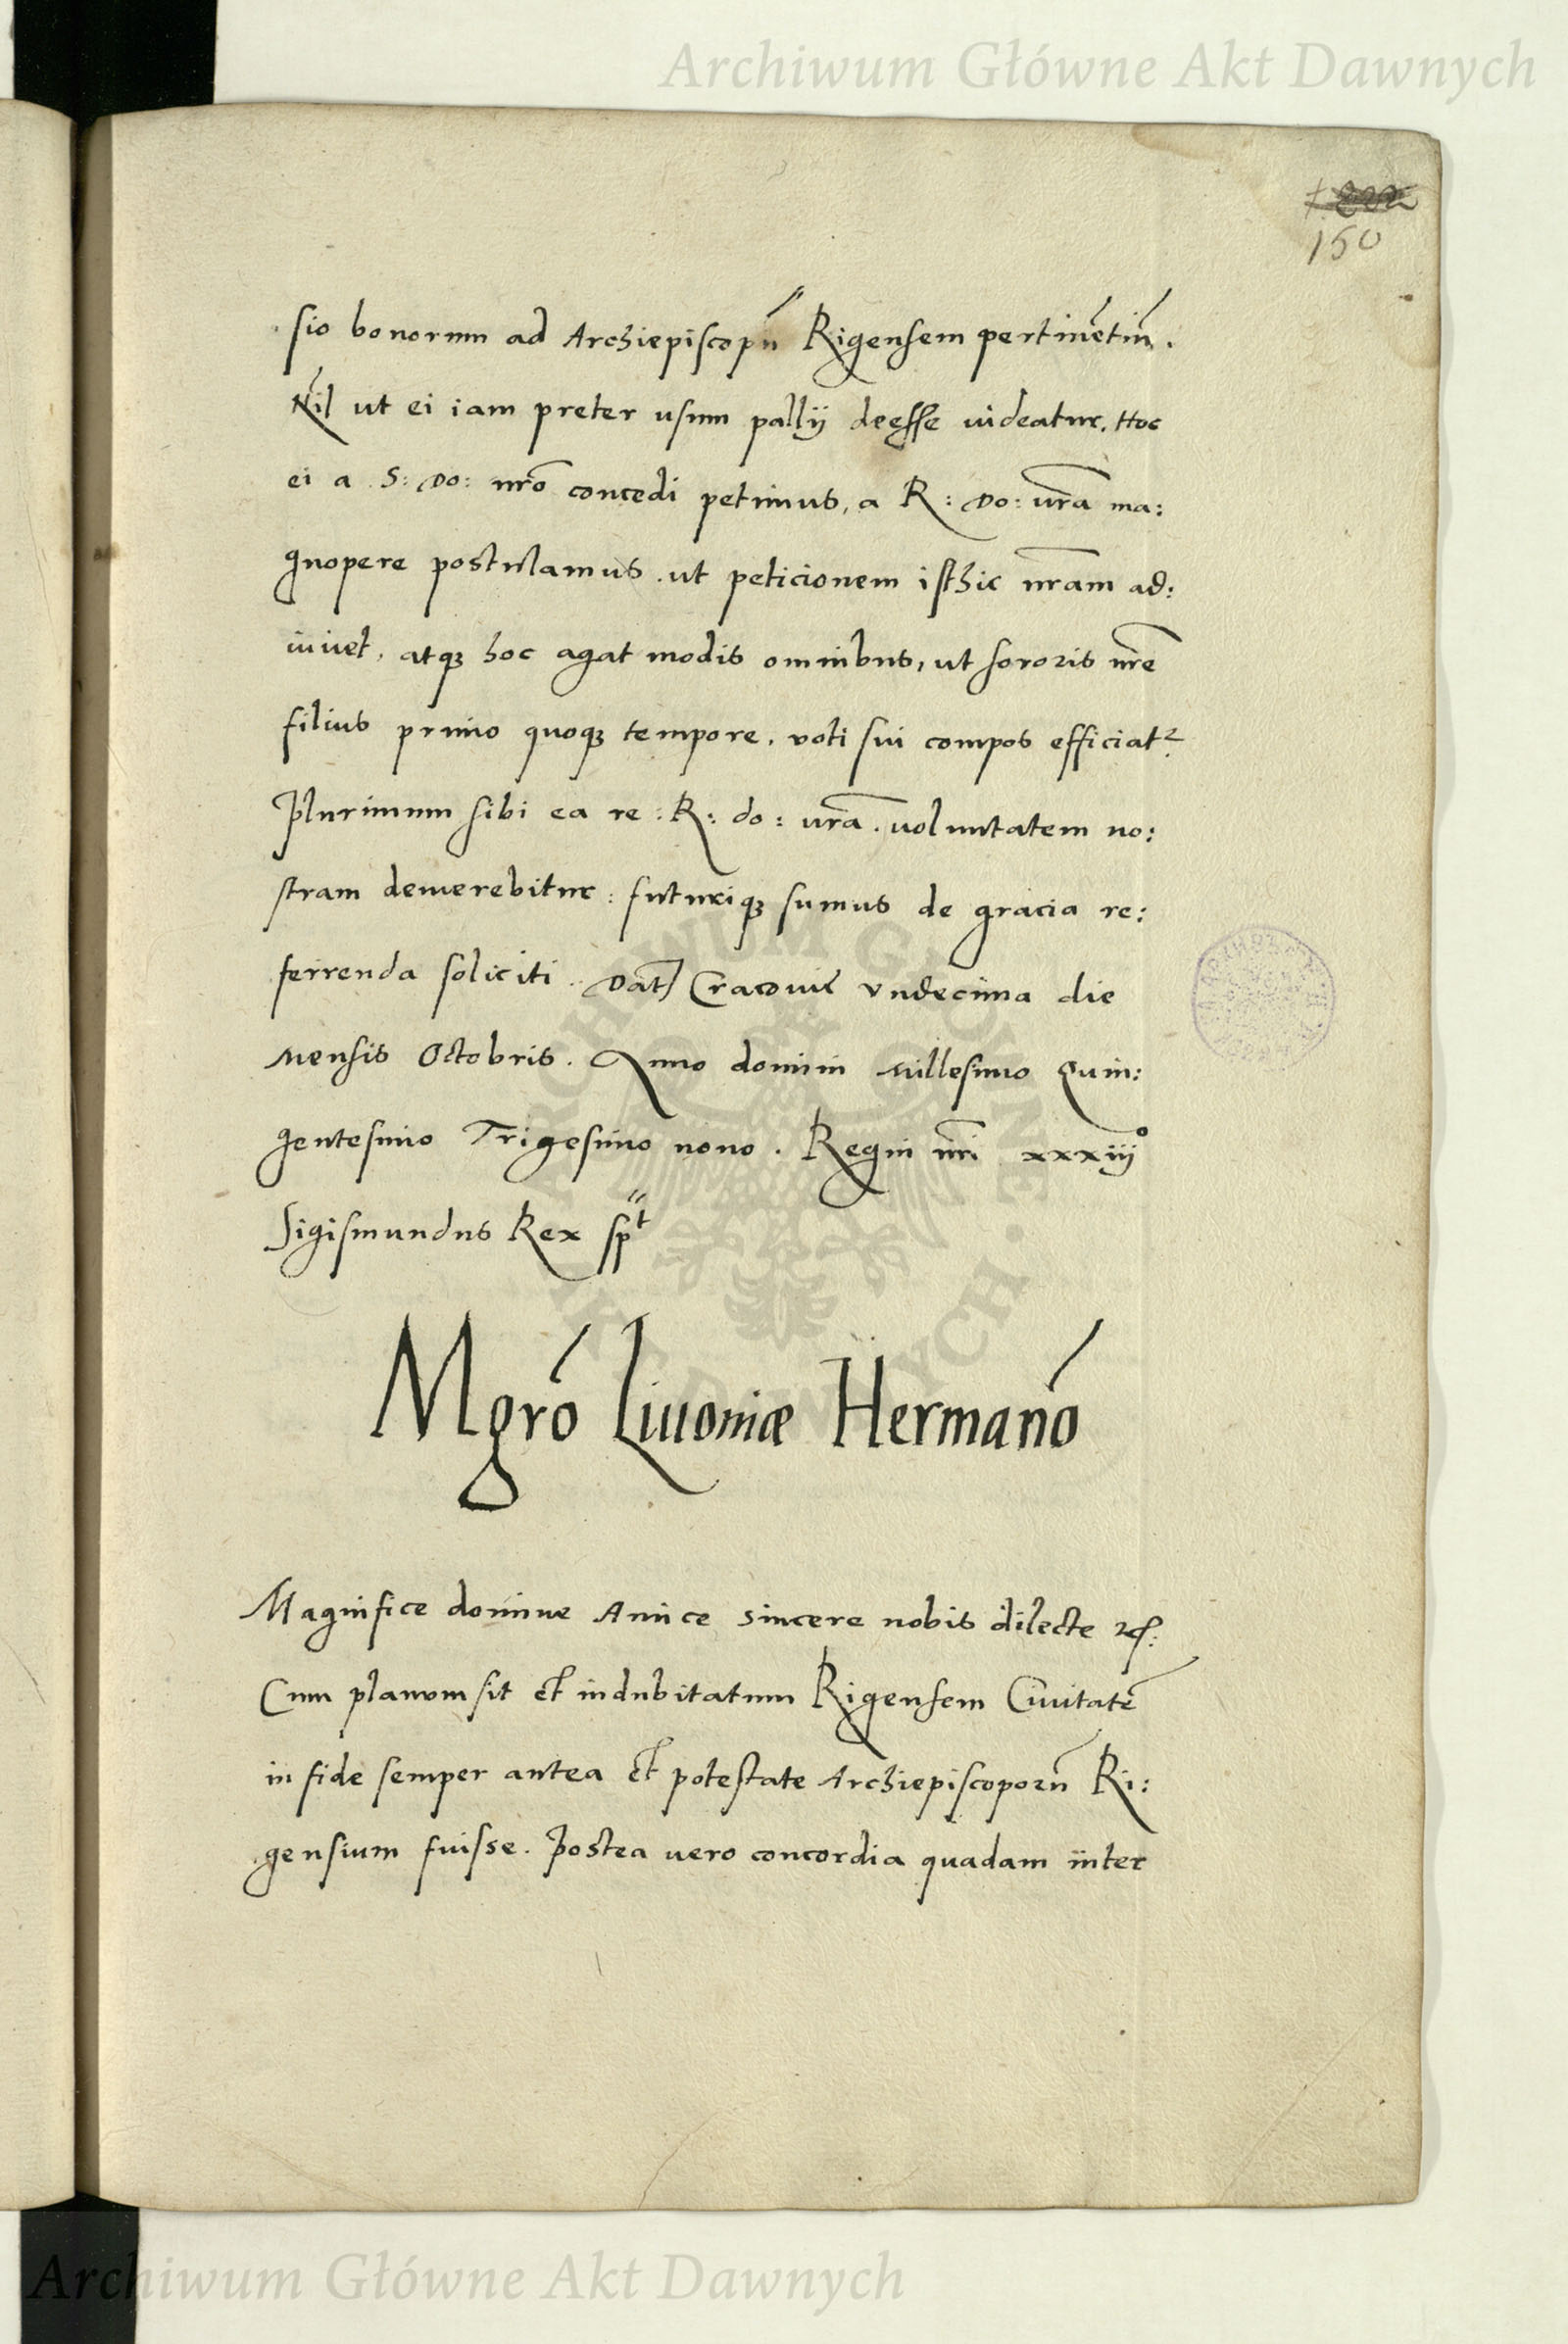 Archiwum Główne Akt Dawnych
150
sio bonorum ad Archiepiscopū Rigensem pertinētiū.
Nīl ut ei iam preter usum pallÿ deesse uideatur. Hoc
ei a S: Do: nr̄o concedi petimus, a R: Do: ur̄a ma:
gnopere postulamus. ut peticionem isthic nr̄am ad:
iuuet, atqꝫ hoc agat modis omnibus, ut sororis nr̄e
filius primo quoqꝫ tempore. voti sui compos efficiat̉
Plurimum sibi ea re: R: do: ur̄a. uoluntatem no:
stram demerebitur: futuriqꝫ sumus de gracia re:
ferrenda soliciti. Dat̄ Cracouie undecima die
mensis Octobris. Anno domini Millesimo Quin:
gentesimo Trigesimo nono. Regni nr̄i xxxiijº
Sigismundus Rex spt
Mgrō Liuoniæ Hermanō
Magnifice domine Amice sincere nobis dilecte
Cum planum sit et indubitatum Rigensem Ciuitatē
in fide semper antea et potestate Archiepiscoporū Ri:
gensium fuisse. Postea uero concordia quadam inter
Archiwum Główne Akt Dawnych